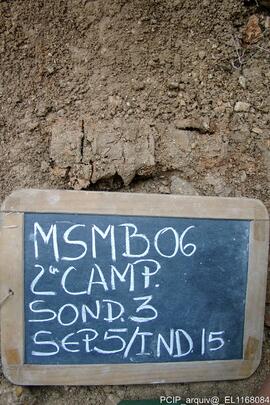 MSMB06
2ª CAMP.
SOND. 3
SEP.5/IND.15
PCIP_arquiv@_EL1168084